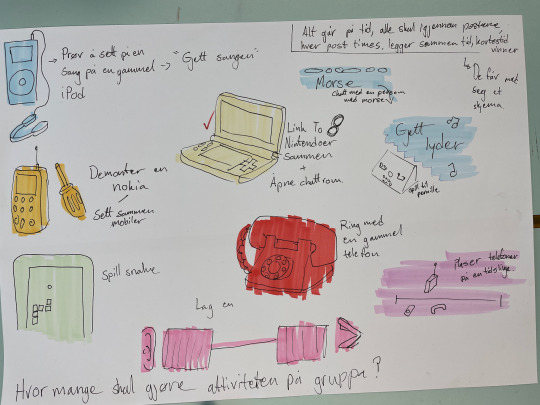 → Prøv å sett på en
sang på en gammel → "Gjett sangen"
iPod
Alt går på tid, alle skal igjennom postene
hver post times, legger sammen tid, kortest tid
vinner
↳ De får med
seg et
skjema
Morse
chatt med en person
med morse
Link To
Nintendoer
sammen
+
Åpne chattrom
Gjett
lyder
Demonter en
nokia
Sett sammen
mobiler
Ring med
en gammel
telefon
Plaser telefoner
på en tidslinje
Spill snake
Lag en
Hvor mange skal gjørre aktiviteten på gruppa?